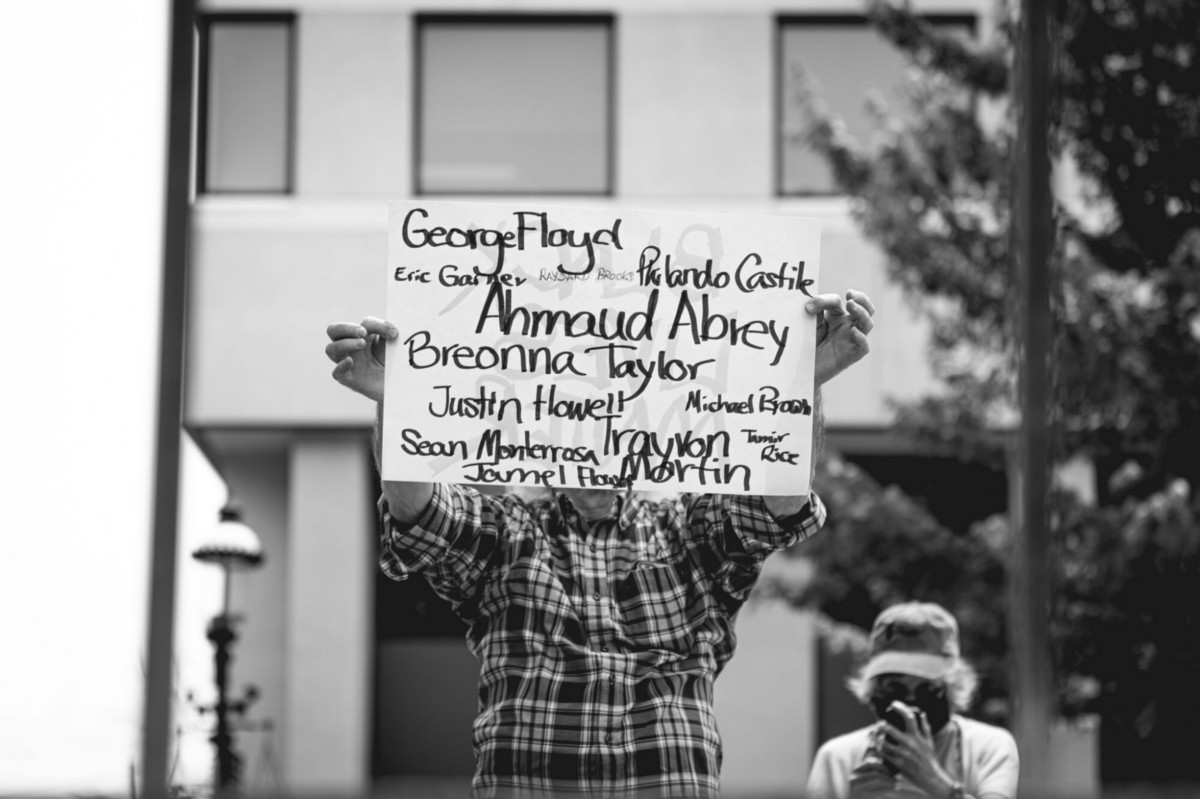 George Floyd
Eric Garner RAYSARD BROOKS Philando Castile
Ahmaud Abrey
Breonna Taylor
Justin Howell Michael Brown
Sean Monterrosa Trayvon Martin Tamir Rice
Jamel Floyd